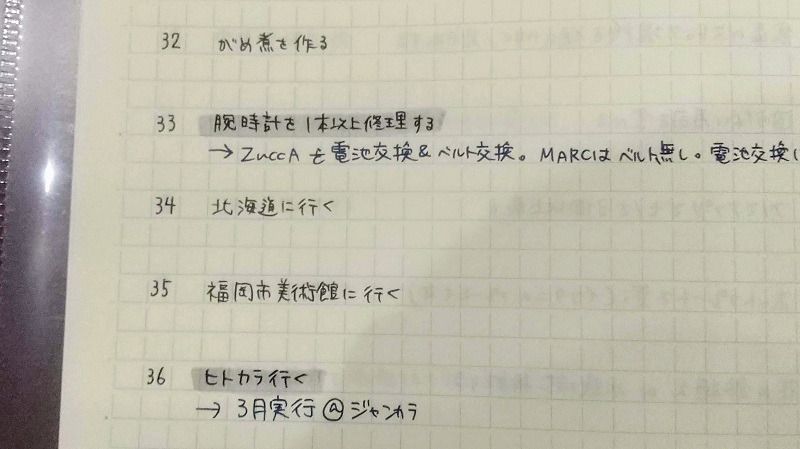 32 がめ煮を作る
33 腕時計を1本以上修理する
→ ZuccAを電池交換&ベルト交換。MARCはベルト無し。電池交換
34 北海道に行く
35 福岡市美術館に行く
36 ヒトカラ行く
→ 3月実行@ジャンカラ